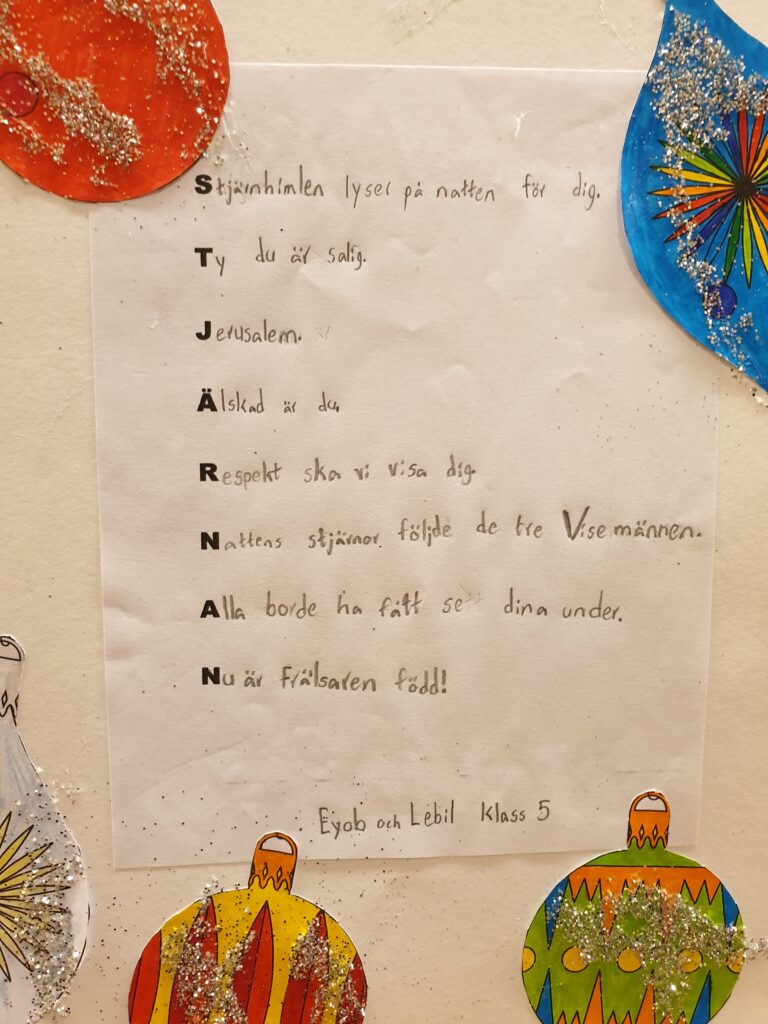 Stjärnhimlen lyser på natten för dig.
Ty du är salig.
Jerusalem.
Älskad är du.
Respekt ska vi visa dig.
Nattens stjärnor följde de tre Vise männen.
Alla borde ha fått sett dina under.
Nu är Frälsaren född!
Eyob och Lebil Klass 5